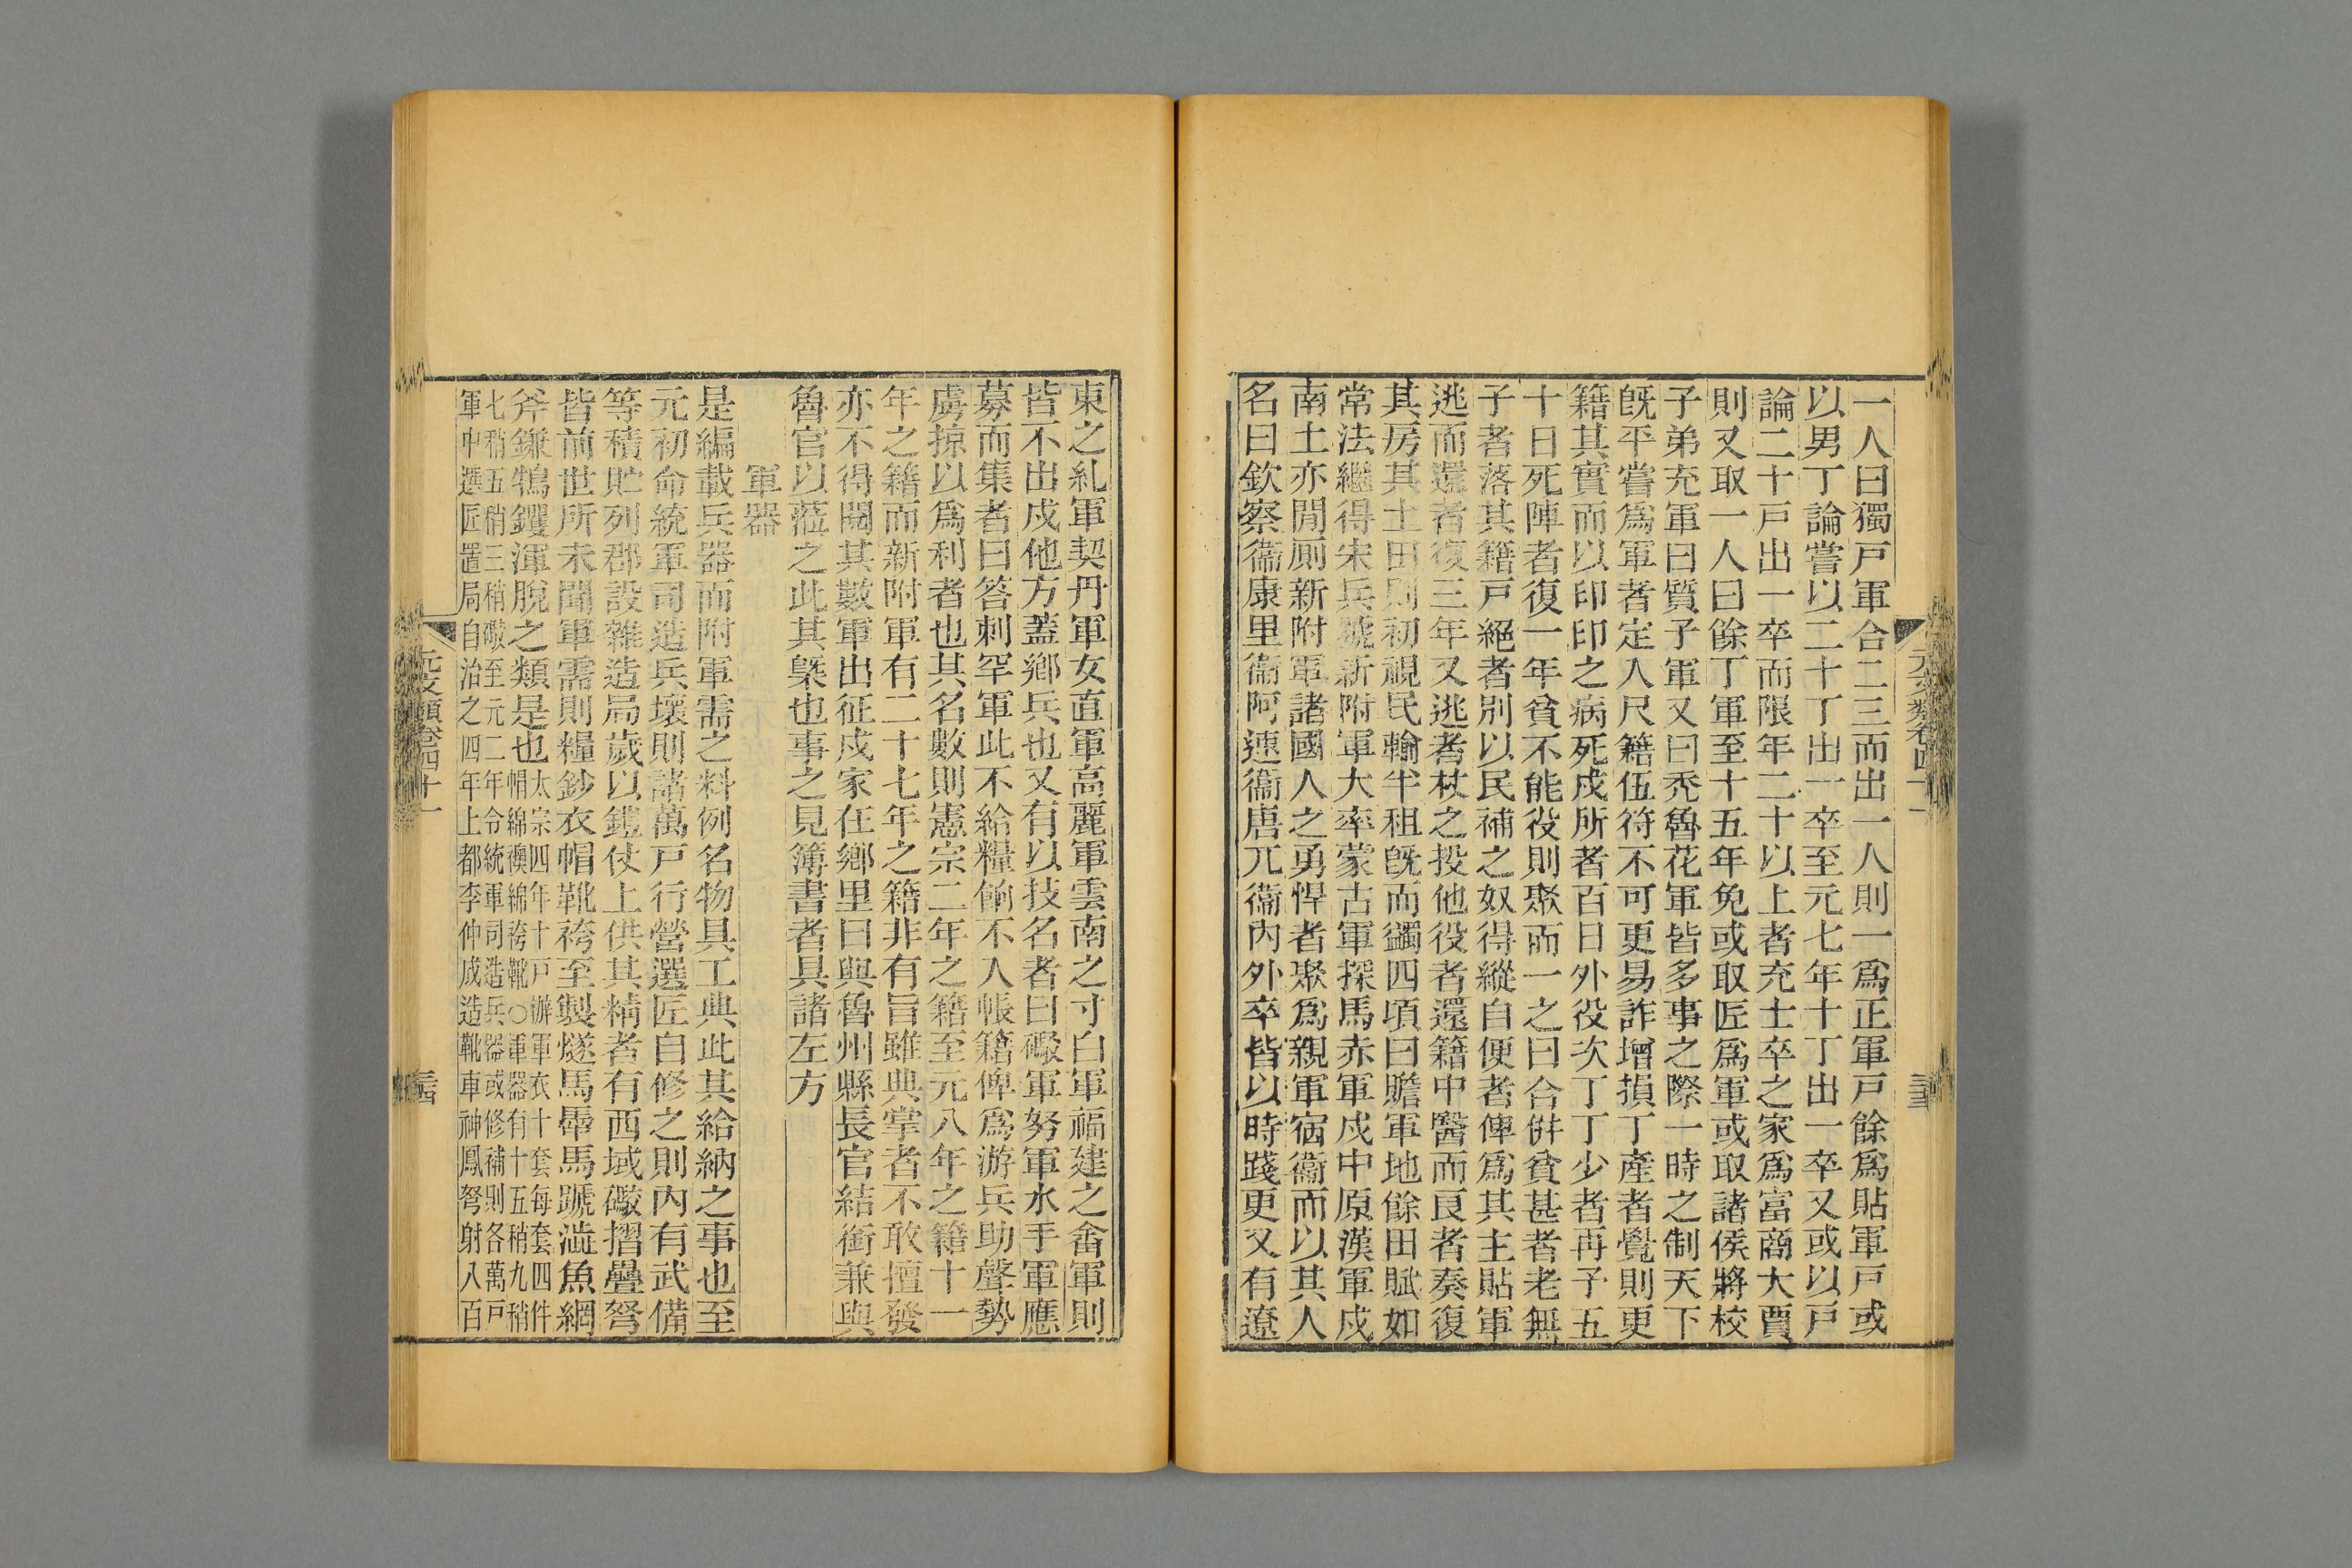 一人曰獨戸軍合二三而出一人則一爲正軍戸餘爲貼軍戸或
以男丁論嘗以二十丁出一卒至元七年十丁出一卒又或以戸
論二十戸出一卒而限年二十以上者充士卒之家爲富商大賈
則又取一人曰餘丁軍至十五年免或取匠爲軍或取諸侯將校
子弟充軍曰質子軍又曰禿魯花軍皆多事之際一時之制天下
旣平嘗爲軍者定入尺籍伍符不可更易詐增損丁產者覺則更
籍其實而以印印之病死戍所者百日外役次丁丁少者再予五
十日死陣者復一年貧不能役則聚而一之曰合倂貧甚者老無
子者落其籍戸絕者別以民補之奴得縱自便者俾爲其主貼軍
逃而還者復三年又逃者杖之投他役者還籍中醫而良者奏復
其房其土田則初視民輸半租旣而蠲四頃曰贍軍地餘田賦如
常法繼得宋兵號新附軍大率蒙古軍探馬赤軍戍中原漢軍戍
南土亦閒廁新附軍諸國人之勇悍者聚爲親軍宿衞而以其人
名曰欽察衞康里衞阿速衞唐兀衞內外卒皆以時踐更又有遼
元文類卷四十一
東之糺軍契丹軍女直軍高麗軍雲南之寸白軍福建之畬軍則
皆不出戍他方蓋鄉兵也又有以技名者曰礮軍努軍水手軍應
募而集者曰答刺罕軍此不給糧餉不入帳籍俾爲游兵助聲勢
虜掠以爲利者也其名數則憲宗二年之籍至元八年之籍十一
年之籍而新附軍有二十七年之籍非有旨雖典掌者不敢擅發
亦不得閱其數軍出征戍家在鄉里曰奧魯州縣長官結銜兼奧
魯官以蒞之此其槩也事之見簿書者具諸左方
軍器
是編載兵器而附軍需之料例名物具工典此其給納之事也至
元初命統軍司造兵壞則諸萬戸行營選匠自修之則內有武備
等積貯列郡設雜造局歲以鎧仗上供其精者有西域礮摺疊弩
皆前世所未聞軍需則糧鈔衣帽靴袴至製燧馬轡馬蹏澁魚網
斧鎌鵇钁渾脫之類是也太宗四年十戸辦軍衣十套每套四件
帽綿襖綿袴靴○軍器有十五稍九稍
七稍五稍三稍礮至元二年令統軍司造兵器或修補則各萬戸
軍中選匠置局自治之四年上都李仲成造靴車神鳳弩射八百
元文類卷四十一
三四